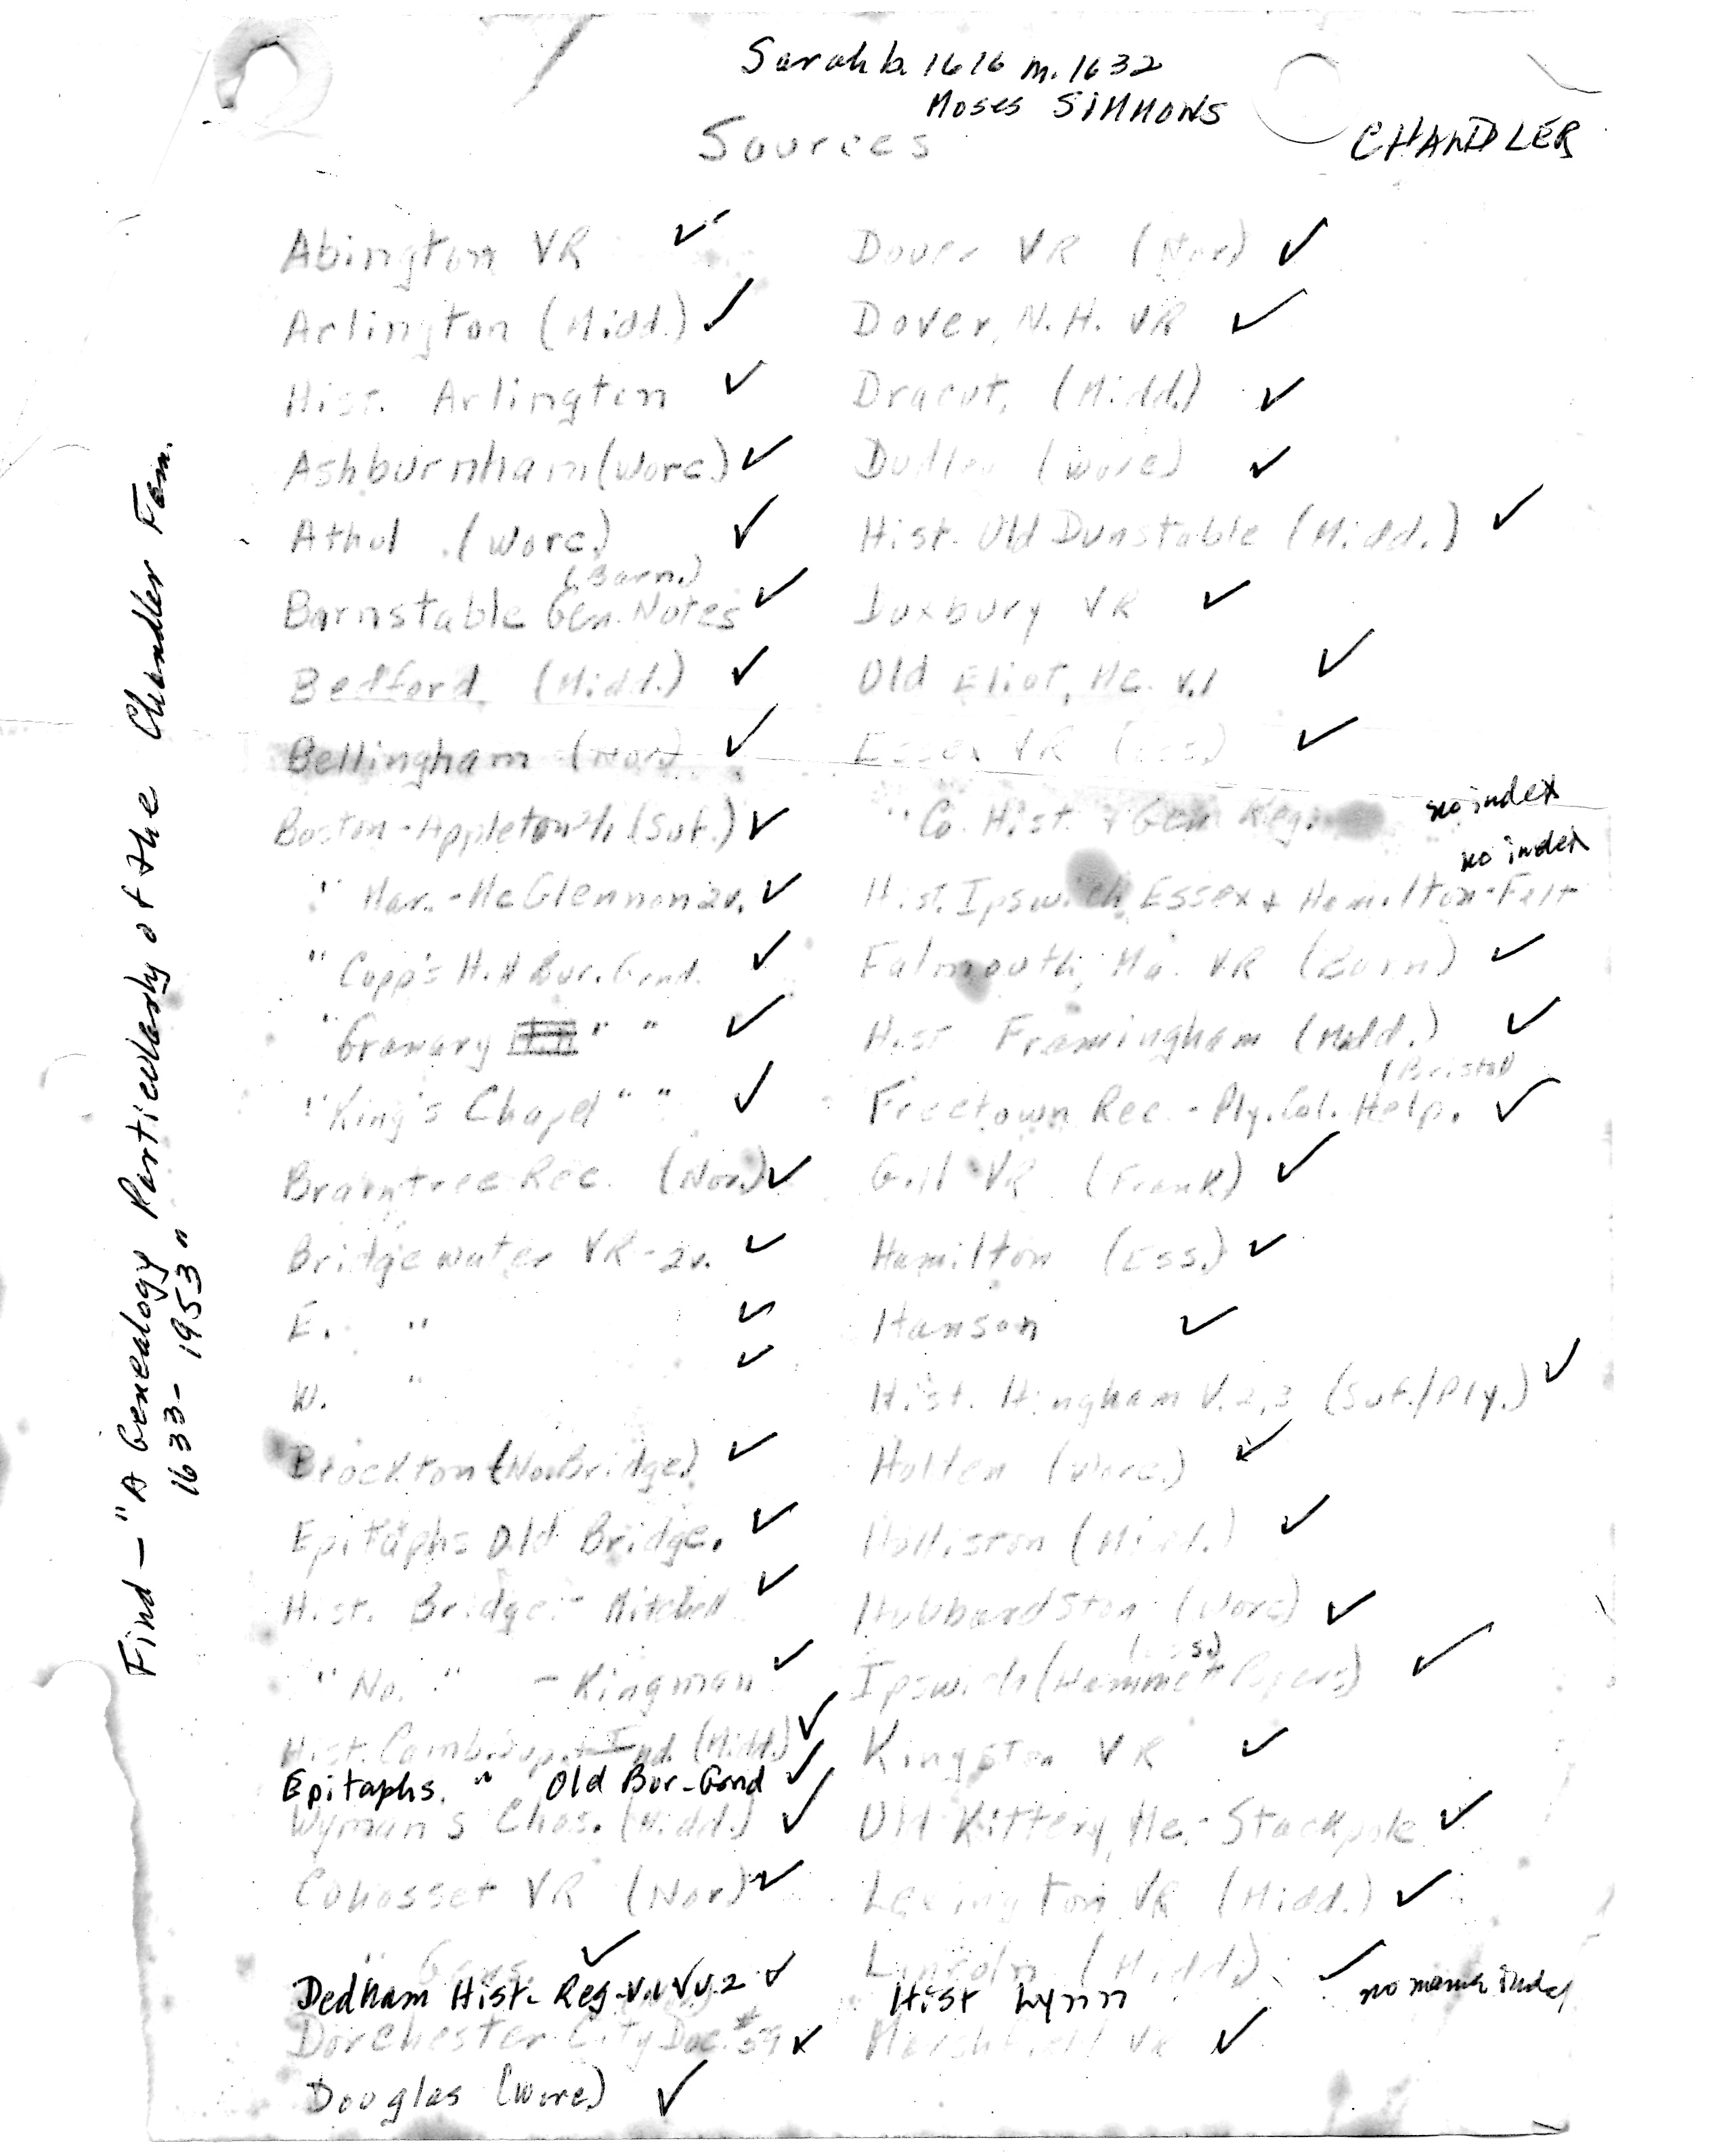 Sarah b. 1616 m. 1632
Moses SIMMONS
CHANDLER
Sources
Find - "A Genealogy Particularly of the Chandler Fam.
1633 - 1953"
Abington VR ✓
Arlington (Midd.) ✓
Hist. Arlington ✓
Ashburnham (Worc.) ✓
Athol (Worc.) ✓
(Barn.)
Barnstable Gen. Notes ✓
Bedford (Midd.) ✓
Bellingham (Nor) ✓
Boston - Appleton (Suf.) ✓
" Mar. - McGlennon 2v. ✓
" Copp's H. Bur. Grnd. ✓
" Granary " " ✓
" King's Chapel " " ✓
Braintree Rec. (Nor.) ✓
Bridgewater VR - 2v. ✓
E. " ✓
W. " ✓
Brockton (No. Bridge) ✓
Epitaphs Old Bridge. ✓
Hist. Bridge. - Mitchell ✓
" No. " - Kingman ✓
Hist. Camb. Sup. + Ind. (Midd.) ✓
Epitaphs. " Old Bur-Grnd ✓
Wyman's Chas. (Midd.) ✓
Cohasset VR (Nor) ✓
" ✓
Dedham Hist. Reg - v.1 ✓ v.2 ✓
Dorchester City Doc. #59 ✓
Douglas (Worc) ✓
Dover VR (Nor) ✓
Dover, N.H. VR ✓
Dracut, (Midd.) ✓
Dudley (Worc) ✓
Hist. Old Dunstable (Midd.) ✓
Duxbury VR ✓
Old Eliot, Me. v.1 ✓
Essex VR (Ess.) ✓
" Co. Hist. & Gen. Reg. no index
no index
Hist. Ipswich, Essex + Hamilton - Felt
Falmouth, Ma. VR (Barn) ✓
Hist. Framingham (Midd.) ✓
(Bristol)
Freetown Rec. - Ply. Col. Help. ✓
Gill VR (Frank) ✓
Hamilton (Ess.) ✓
Hanson ✓
Hist. Hingham V. 2,3 (Suf./Ply.) ✓
Holden (Worc.) ✓
Holliston (Midd.) ✓
Hubbardston (Worc) ✓
(Ess.)
Ipswich (Hammett Papers) ✓
Kingston VR ✓
Old Kittery, Me. - Stackpole ✓
Lexington VR (Midd.) ✓
Lincoln (Midd.) ✓
Hist Lynn no name index
Marshfield VR ✓